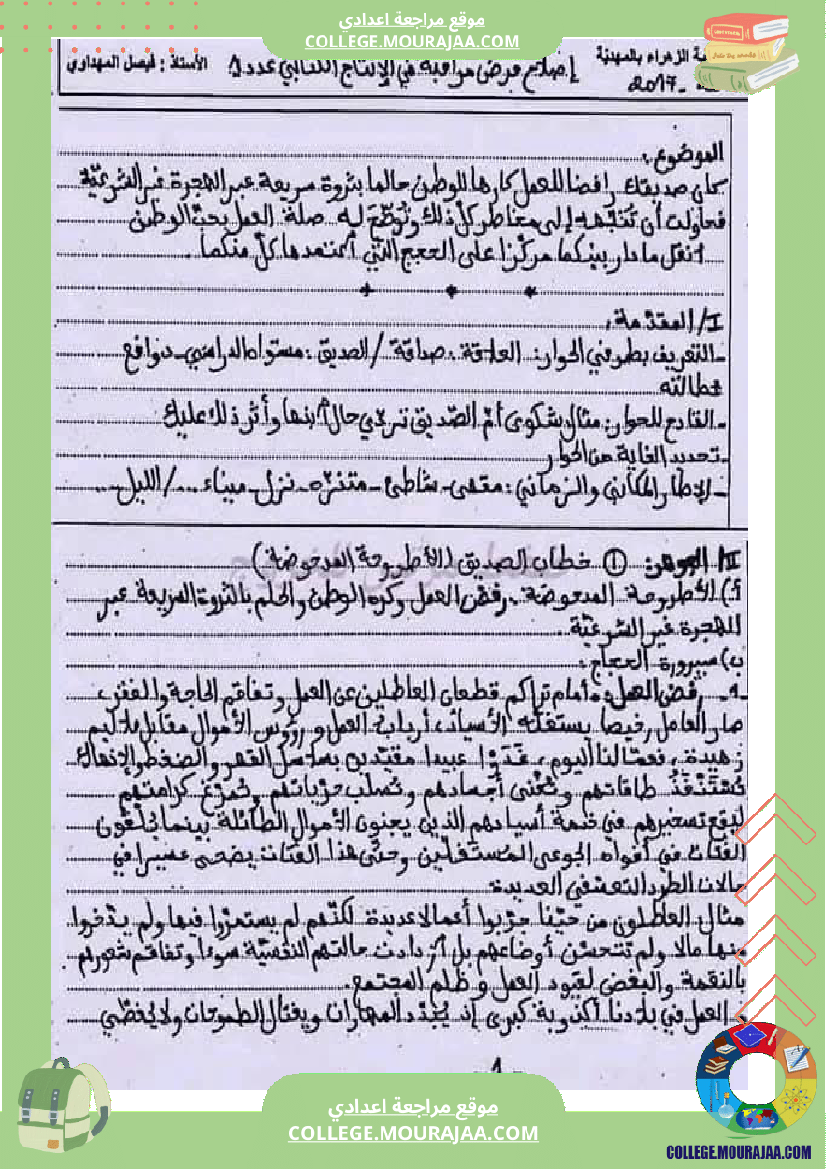 موقع مراجعة اعدادي
COLLEGE.MOURAJAA.COM
الزهراء بالمهدية
2017
إصلاح فرض مراقبة في الإنتاج الكتابي عدد 5
الأستاذ : فيصل المهداوي
الموضوع:
كان صديقك رافضا للعمل كارها للوطن حالما بثروة سريعة عبر الهجرة غير الشرعيّة
فحاولت أن تُنبّهه إلى مخاطر كلّ ذلك وتُوضّح له صلة العمل بحبّ الوطن
أنقل ما دار بينكما مركّزا على الحجج التي اعتمدها كلّ منكما.
I/ المقدّمة:
- التعريف بطرفي الحوار: العلاقة: صداقة / الصديق: مستواه الدراسي - دوافع
عطالته
- القادح للحوار: مثال شكوى أمّ الصّديق تردّي حال ابنها وأثر ذلك عليك
- تحديد الغاية من الحوار
- الإطار المكاني والزماني: مقهى - شاطئ - متنزّه - نزل - ميناء .../ الليل...
II/ الجوهر: ① خطاب الصديق (الأطروحة المدحوضة)
أ) الأطروحة المدحوضة: رفض العمل وكره الوطن والحلم بالثروة السريعة عبر
الهجرة غير الشرعيّة.
ب) سيرورة الحجاج:
رفض العمل: أمام تراكم قطعان العاطلين عن العمل وتفاقم الحاجة والفقر،
صار العامل رخيصا يستغلّه الأسياد أرباب العمل ورؤوس الأموال مقابل ملاليم
زهيدة، فعمّالنا اليوم، غَدَوْا عبيدا مقيّدين بسلاسل القهر والضغط والإنهاك
تُسْتَنْفَذُ طاقاتهم وتُفْنى أجسادهم وتُسلب حرّياتهم وتُمرّغ كرامتهم
ليقع تسخيرهم في خدمة أسيادهم الذين يجنون الأموال الطائلة بينما يُلقون
الفتات في أفواه الجوعى المُستغَلّين وحتّى هذا الفتات يضحى عسيرا في
حالات الطرد التعسّفي العديدة.
مثال: العاطلون من حيّنا جرّبوا أعمالا عديدة لكنّهم لم يستمرّوا فيها ولم يدّخروا
منها مالا ولم تتحسّن أوضاعهم بل ازدادت حالتهم النفسيّة سوءا وتفاقم شعورهم
بالنقمة والبغض لقيود العمل وظلم المجتمع.
العمل في بلادنا أكذوبة كبرى إذ يُبدّد المهارات ويغتال الطموحات ولا يُفضي
1
موقع مراجعة اعدادي
COLLEGE.MOURAJAA.COM
COLLEGE.MOURAJAA.COM